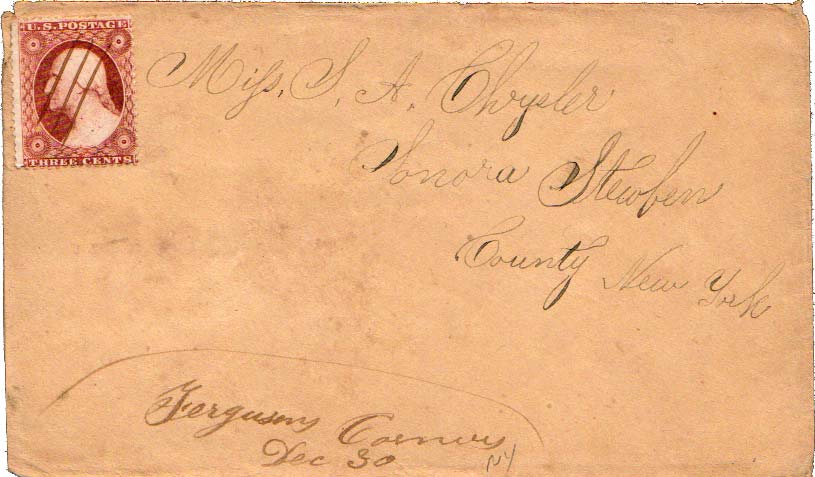 U.S. POSTAGE
THREE CENTS
Miss. S. A. Chrysler
Sonora Steuben
County New York
Fergusons Corners
Dec 30
NY